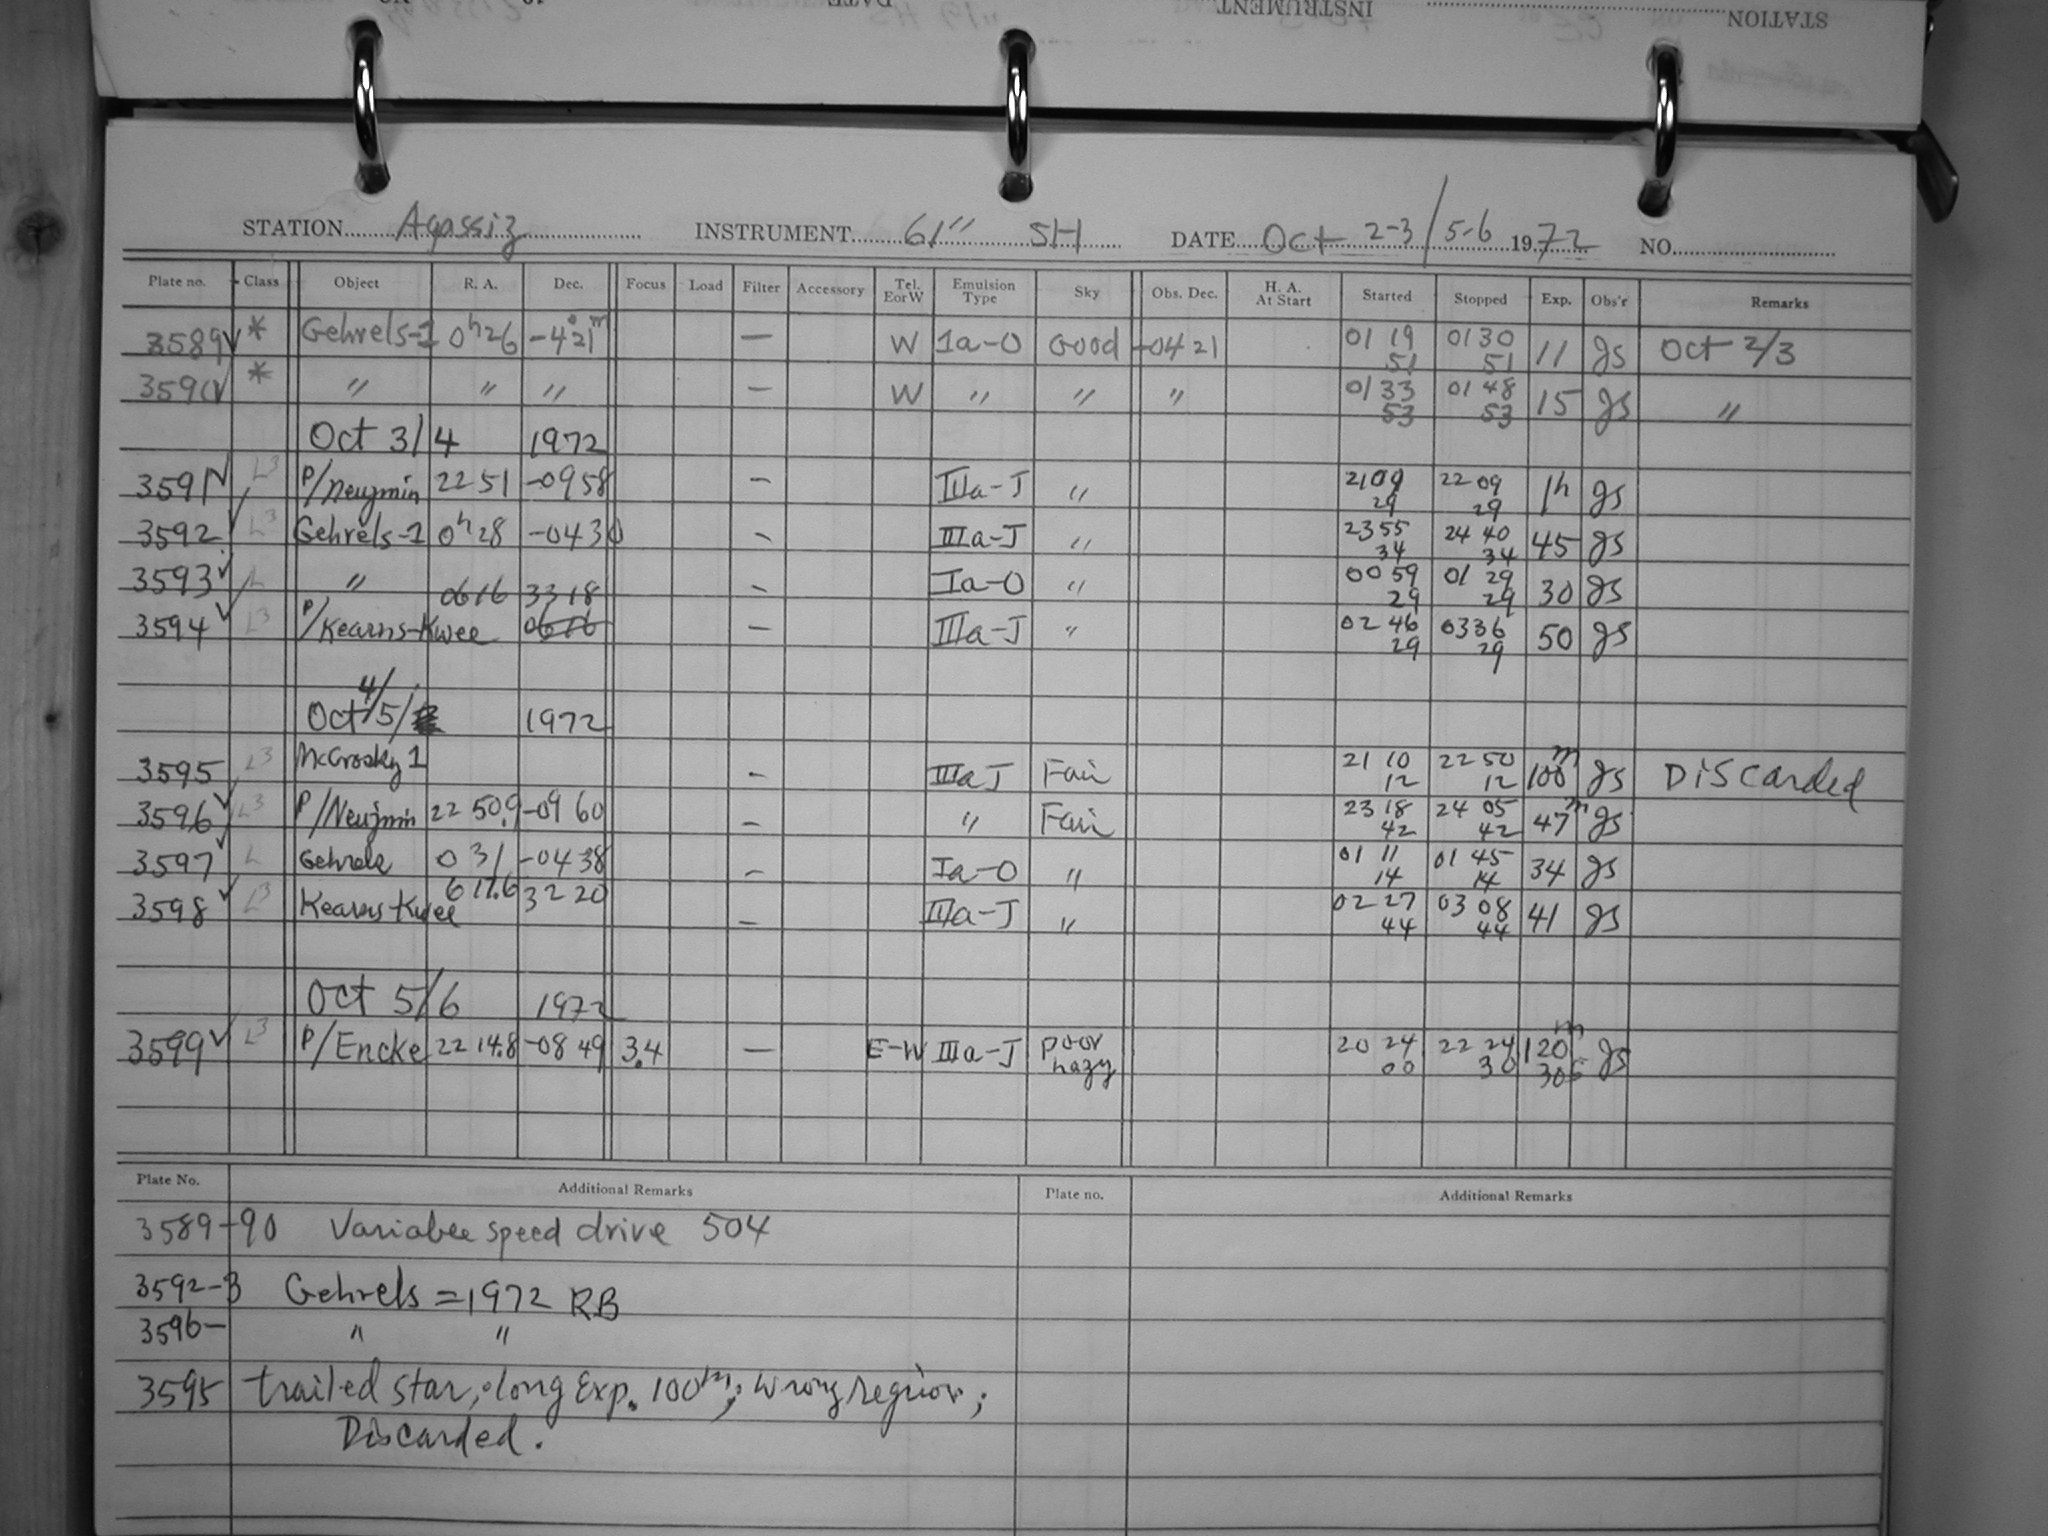 STATION
INSTRUMENT
DATE
STATION Agassiz INSTRUMENT 61" SH DATE Oct 2-3/5-6 1972 NO.
Plate no. Class Object R. A. Dec. Focus Load Filter Accessory Tel. EorW Emulsion Type Sky Obs. Dec. H. A. At Start Started Stopped Exp. Obs'r Remarks
3589 ✓ * Gehrels-1 0h26 -4°21m — W Ia-O Good -0421 01 19 51 01 30 51 11 gs Oct 2/3
3590 ✓ * " " " — W " " " 01 33 53 01 48 53 15 gs "
Oct 3/4 1972
3591 ✓ L3 P/Neujmin 22 51 -0958 — IIIa-J " 21 09 29 22 09 29 1h gs
3592 ✓ L3 Gehrels-1 0h28 -0430 - IIIa-J " 23 55 34 24 40 34 45 gs
3593 ✓ L " - Ia-O " 00 59 29 01 29 29 30 gs
3594 ✓ L3 P/Kearns-Kwee 0616 3318 0616 — IIIa-J " 02 46 29 03 36 29 50 gs
Oct 4/5/ 1972
3595 L3 McCrosky 1 - IIIaJ Fair 21 10 12 22 50 12 100m gs Discarded
3596 ✓ L3 P/Neujmin 22 50.9 -09 60 - " Fair 23 18 42 24 05 42 47m gs
3597 ✓ L Gehrels 0 31 -04 38 - Ia-O " 01 11 14 01 45 14 34 gs
3598 ✓ L3 Kearns-Kwee 6 17.6 32 20 - IIIa-J " 02 27 44 03 08 44 41 gs
Oct 5/6 1972
3599 ✓ L3 P/Encke 22 14.8 -08 49 3.4 — E-W IIIa-J poor hazy 20 24 00 22 24 30 120m 30s gs
Plate No. Additional Remarks Plate no. Additional Remarks
3589-90 Variabee speed drive 504
3592-3 Gehrels = 1972 RB
3596- " "
3595 trailed star, long Exp. 100m; wrong region;
Discarded.